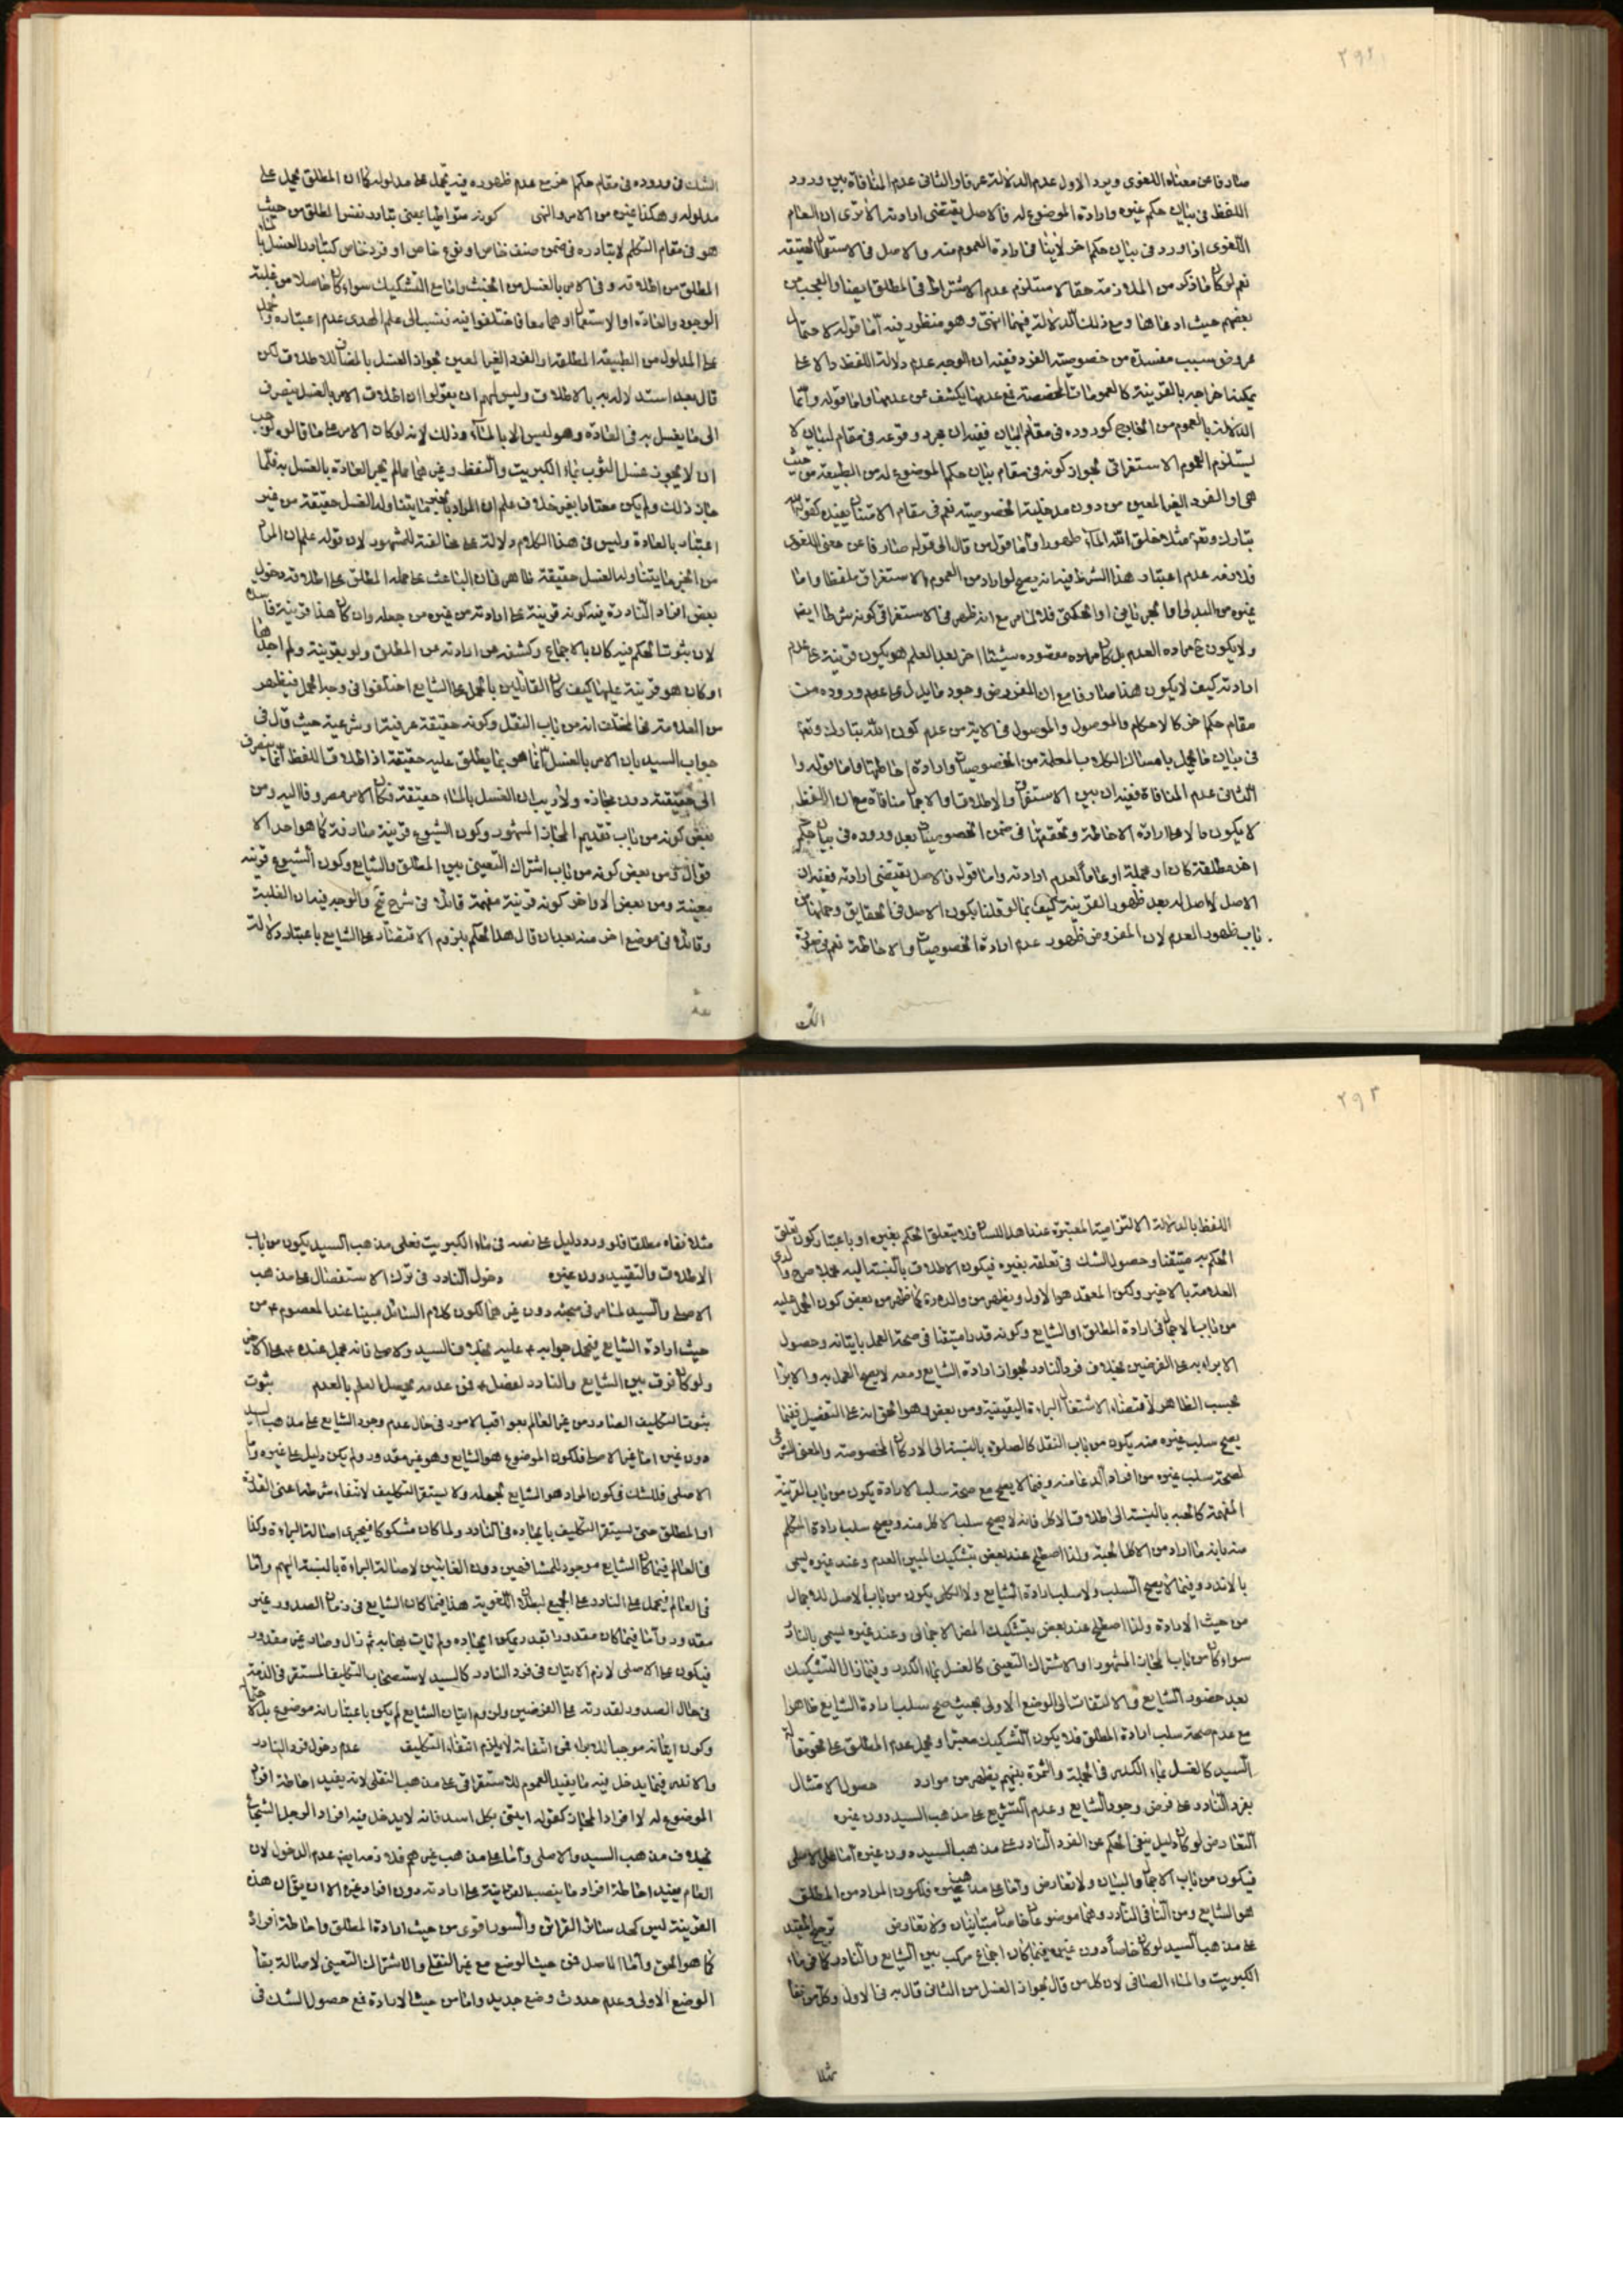 ٢٩٢
صارفا عن معناه اللغوى ويرد الاول عدم الدلالة عرفا والثانى عدم المنافاة بين ورود
اللفظ فى بيان حكم غيره وارادة الموضوع له فالاصل يقتضى ارادته الا ترى ان العام
اللغوى اذا ورد فى بيان حكم اخر لا ينافى ارادة العموم منه والاصل فى الاستعمال الحقيقة
نعم لو كان ما ذكر من الملازمة حقا لاستلزم عدم الاشتراط فى المطلق ايضا والعجب من
بعضهم حيث ادعاها ومع ذلك الدلالة فيهما انتهى وهو منظور فيه اما قوله لاحتمال
عروض سبب مفسدة من خصوصية الفرد ففيه ان الوجه عدم دلالة اللفظ والا
يمكننا اخراجه بالقرينة كالعمومات المخصصة فمع عدمها يكشف عن عدمها واما قوله وانما
الدلالة بالعموم من الخارج كوروده فى مقام البيان ففيه ان مجرد وقوعه فى مقام البيان لا
يستلزم العموم الاستغراقى لجواز كونه فى مقام بيان حكم الموضوع له من الطبيعة من حيث
هى او الفرد الغير المعين من دون مدخلية الخصوصية نعم فى مقام الامتنان يفيده كقوله
تبارك وتعالى مثلا خلق الله الماء طهورا واما قول من قال الى قوله صارفا عن معنى اللغوى
فلا وجه عدم اعتبار هذا الشرط فيه انه يصح لو اراد من العموم الاستغراقى ملفظا واما
غيره من البدلى او المجرى فى او الحكمتى فلا لما مر مع انه ظهر فى الاستغراقى كونه شرطا ايضا
ولا يكون مراده العدم بل كان مراده مقصوده شيئا اخر بعد العلم هو يكون قرينة على عدم
ارادته كيف لا يكون هذا صارفا مع ان المفروض وجود ما يدل على عدم وروده من
مقام حكم اخر كالاحكام والموصول والموصول فى الاية من عدم كون الله تبارك وتعالى
فى بيان ما يحل بامساك الكلاب المعلمة من الخصوصيات وارادة احاطتها واما قوله و
الثانى عدم المنافاة ففيه ان بين الاستغراق والاطلاق والاجمال منافاة مع ان اللفظ
لا يكون دالا على ارادة الاحاطة وتحققها فى ضمن الخصوصيات بعد وروده فى بيان حكم
اخر مطلقة كان او مجملة او عاما لعدم ارادته واما قوله فالاصل يقتضى ارادته ففيه ان
الاصل لا اصل له بعد ظهور القرينة كيف بما لو قلنا بكون الاصل فى الحقايق وحملها من
باب ظهور العدم لان المفروض ظهور عدم ارادة الخصوصيات والاحاطة نعم فى صورة
الشك
الشك فى وروده فى مقام حكم اخر مع عدم ظهوره فيه يحمل على مدلوله كما ان المطلق يحمل على
مدلوله وهكذا غيره من الامر والنهى كونه متواطيا بمعنى تبادر نفس المطلق من حيث
هو فى مقام التكلم لا تبادره فى ضمن صنف خاص او نوع خاص او فرد خاص كتبادر الغسل بالماء
المطلق من اطلاقه وفى الامر بالغسل من الخبث واما مع التشكيك سواء كان حاصلا من غلبة
الوجود والعادة او الاستعمال او هما معا فاختلفوا فيه فنسب الى علم الهدى عدم اعتباره وحمل
على المدلول من الطبيعة المطلقة او الفرد الغير المعين بجواز الغسل بالمضاف للاطلاق لكن
قال بعد استدلاله به بالاطلاق وليس لهم ان يقولوا ان اطلاق الامر بالغسل ينصرف
الى ما يغسل به فى العادة وهو ليس الا بالماء وذلك لانه لو كان الامر على ما قالوه لوجب
ان لا يجوز غسل الثوب بماء الكبريت والنفط وغيرهما مما لم تجر العادة بالغسل به فلما
جاز ذلك ولم يكن معتادا بغير خلاف علم ان المراد بالخبر ما يتناوله الغسل حقيقة من غير
اعتبار بالعادة وليس فى هذا الكلام دلالة على مخالفته للمشهور لان قوله علم ان المراد
من الخبر ما يتناوله الغسل حقيقة ظاهر فى ان الباعث على حمله المطلق على اطلاقه دخول
بعض افراد النادرة فيه كونه قرينة على ارادته من غيره من جعله وان كان هذا قرينة فاسدة
لان ثبوت الحكم فيه كان بالاجماع وكشفه عن ارادته من المطلق ولو بقرينة ولم اجدها
او كان هو قرينة عليها كيف كان القائلين بالحمل على الشايع اختلفوا فى وجه الحمل فيظهر
من العلامة فى المختلف انه من باب النقل وكونه حقيقة عرفية او شرعية حيث قال فى
جواب السيد بان الامر بالغسل انما هو بما يطلق عليه حقيقة اذ اطلاق اللفظ انما ينصرف
الى حقيقته دون مجازه ولا ريب ان الغسل بالماء حقيقة فكان الامر مصروفا اليه ومن
بعض كونه من باب تقديم المجاز المشهور وكون الشيوع قرينة صارفة كما هو احد الا
قوال ومن بعض كونه من باب اشتراك التعينى بين المطلق والشايع وكون الشيوع قرينة
معينة ومن بعض الاواخر كونه قرينة مفهمة قائلا فى شرح والوجه فيه ان الغلبة
وقائلا فى موضع اخر منه بعد ان قال هذا الحكم بلزوم الاقتصار على الشايع باعتبار دلالة
٢٩٣
اللفظ بالدلالة الالتزامية المعتبرة عند اهل اللسان فلا يتعلق الحكم بغيره او باعتبار كون تعلق
الحكم به متيقنا وحصول الشك فى تعلقه بغيره فيكون الاطلاق بالنسبة اليه مجملا صرح و
العلامة بالاخير ولكن المعتمد هو الاول ويظهر من والده ره كما ظهر من بعض كون الحمل عليه
من باب الاجمال فى ارادة المطلق او الشايع وكونه قدرا متيقنا فى صحة العمل باتيانه وحصول
الابراء به على الفرضين بخلاف فرد النادر لجواز ارادة الشايع ومعه لا يصح العمل به والابراء
بحسب الظاهر لاقتضاء الاشتغال البراءة اليقينية ومن بعض وهو الحق انه على التفصيل ففيما
يصح سلب غيره منه يكون من باب النقل كالصلوة بالنسبة الى الاركان المخصوصة والمعنى الشرعى
لصحة سلب غيره من افراد الدعا منه وفيما لا يصح مع صحة سلب الارادة يكون من باب القرينة
المفهمة كالجبه بالنسبة الى اطلاق الاكل فانه لا يصح سلب الاكل منه ويصح سلب ارادة المتكلم
منه بانه ما اراد من الاكل الجبه ولذا اصطلح عند بعض بتشكيك المبين العدم وعند غيره يسمى
بالاندر وفيما لا يصح السلب ولا سلب ارادة الشايع ولا الكلى يكون من باب الاصل للاجمال
من حيث الارادة ولذا اصطلح عند بعض بتشكيك المضر الاجمالى وعند غيره يسمى بالنادر
سواء كان من باب المجاز المشهور او الاشتراك التعينى كالغسل بماء الكدر وفيما زال التشكيك
بعد حضور الشايع والالتفات الى الوضع الاولى بحيث صح سلب ارادة الشايع ظاهرا
مع عدم صحة سلب ارادة المطلق فلا يكون التشكيك معتبرا ويحمل عدم المطلق على نحو مقالة
السيد كالغسل بماء الكدر فى الجملة والثمرة بينهم يظهر من موارد حصول الامتثال
بفرد النادر على فرض وجود الشايع وعدم التشريع على مذهب السيد دون غيره
التعارض لو كان دليل ينفى الحكم عن الفرد النادر على مذهب السيد دون غيره اما على الاصلى
فيكون من باب الاجمال والبيان ولا تعارض واما على مذهب غيره فلكون المراد من المطلق
هو الشايع ومن النافى النادر وهما موضوعان خاصان متباينان ولا تعارض ترجيح المقيد
على مذهب السيد لو كان خاصا دون غيره فيما كان اجماع مركب بين الشايع والنادر كما فى ماء
الكبريت والماء الصافى لان كل من قال بجواز الغسل من الثانى قال به فى الاول وكل من نفا
مثلا
مثلا نفاه مطلقا فلو ورد دليل على نصه فى ماء الكبريت فعلى مذهب السيد يكون من باب
الاطلاق والتقييد دون غيره دخول النادر فى ترك الاستفصال على مذهب
الاصلى والسيد لما مر فى مبحثه دون غيرهما لكون كلام السائل مبينا عند المعصوم من
حيث ارادة الشايع فيحمل جوابه عليه بخلاف السيد والاصلى فانه مجمل عنده
ولو كان فرق بين الشايع والنادر لفصل فمن عدمه يحصل العلم بالعدم ثبوت
ثبوت التكليف الصادر من غير العالم بعواقب الامور فى حال عدم وجود الشايع على مذهب السيد
دون غيره اما غير الاصلى فلكون الموضوع هو الشايع وهو غير مقدور ولم يكن دليل على غيره واما
الاصلى فللشك فى كون المراد هو الشايع لجهله ولا يستقر التكليف لانتفاء شرطه اعنى القدرة
او المطلق حتى يستقر التكليف بايجاده فى النادر ولما كان مشكوكا فيجرى اصالة البراءة وكذا
فى العالم فيما كان الشايع موجودا للمشافهين دون الغائبين لاصالة البراءة بالنسبة اليهم واما
فى العالم فيحمل على النادر على الجميع لبطلان اللغوية هذا فيما كان الشايع فى زمان الصدور غير
مقدور واما فيما كان مقدورا بقدر يمكن ايجاده ولم يات بايجابه ثم زال وصار غير مقدور
فيكون على الاصلى لازم الاتيان فى فرد النادر كالسيد لاستصحاب التكليف المستقر فى الذمة
فى حال الصدور لقدرته على الفرضين ولزوم اتيان الشايع لم يكن باعتبار انه موضوع بل لاحتمال
وكون اتيانه موجبا للابراء ففى انتفائه لا يلزم انتفاء التكليف عدم دخول فرد النادر
والاندر فيما يدخل فيه ما يفيد العموم للاستغراقى على مذهب النقلى لانه يفيد احاطة افراد
الموضوع له لا افراد المجاز كقوله ايتنى بكل اسد فانه لا يدخل فيه افراد الرجل الشجاع
بخلاف مذهب السيد والاصلى واما على مذهب غيرهم فلازمه ايض عدم الدخول لان
العام يفيد احاطة افراد ما ينصب القرينة على ارادته دون افراد غيره الا ان يقال ان هذه
القرينة ليس كحد سائر القرائن والسور اقوى من حيث ارادة المطلق واحاطة افراده
كما هو الحق واما الاصل فمن حيث الوضع مع غير النقلى والاشتراك التعينى لاصالة بقاء
الوضع الاولى وعدم حدوث وضع جديد واما من حيث الارادة فمع حصول الشك فى